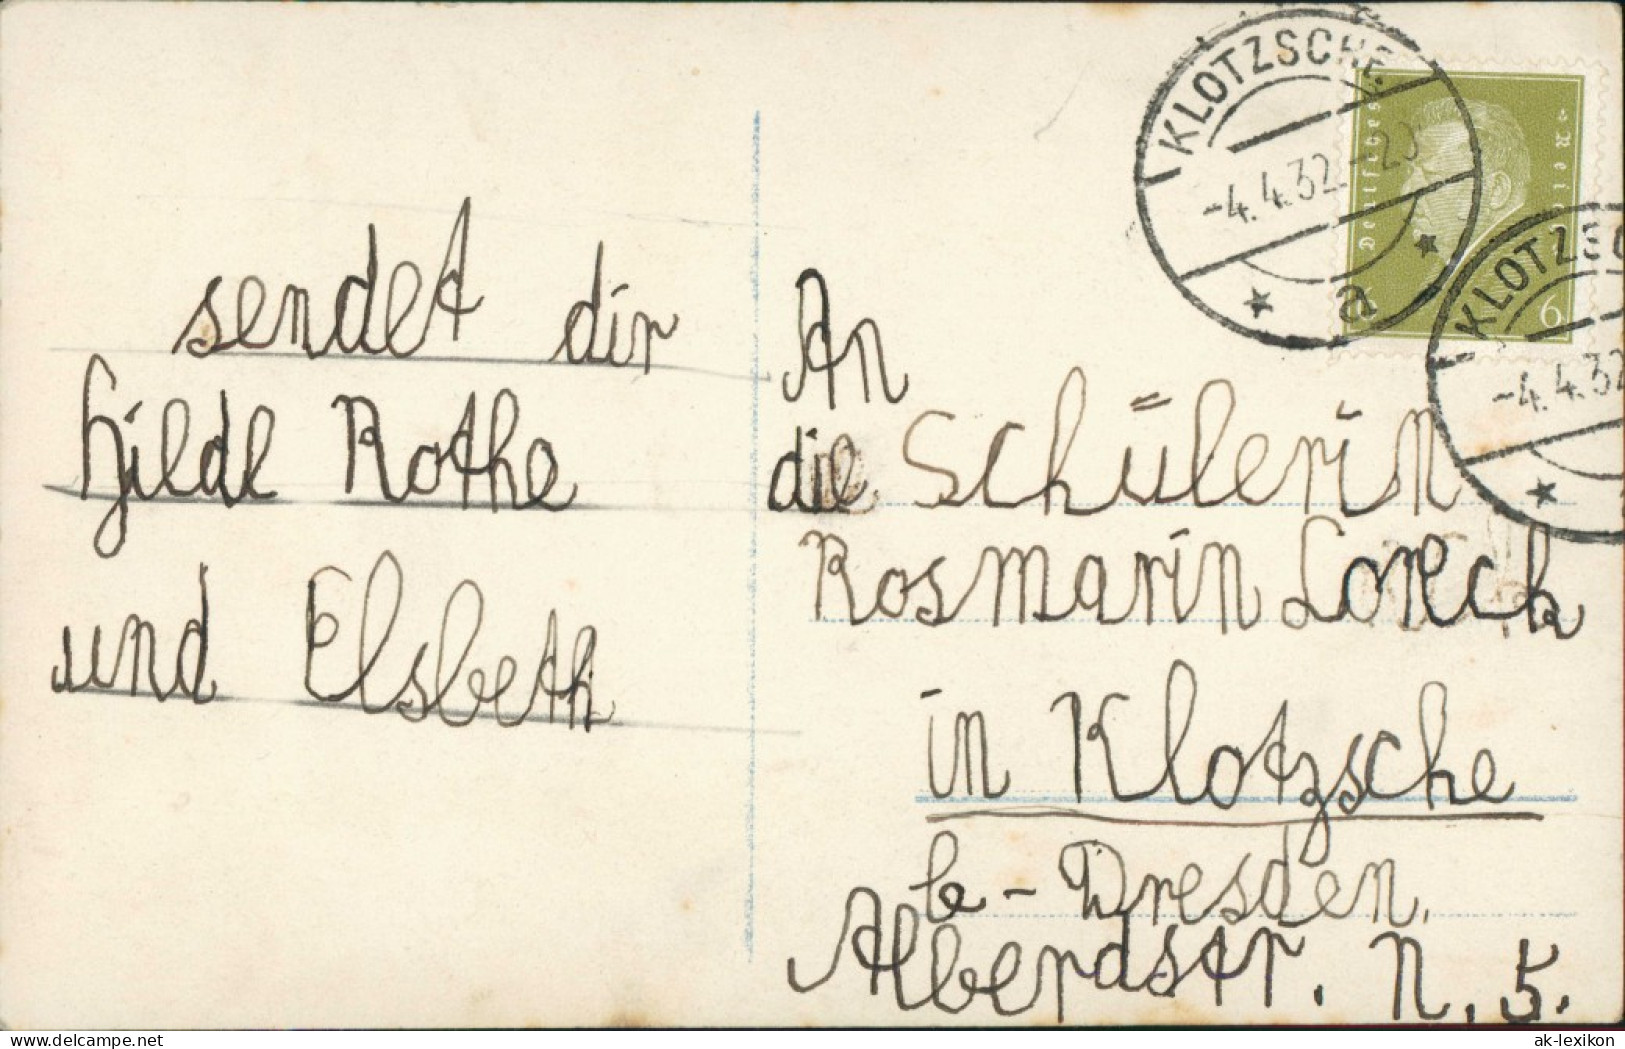 sendet dir
Hilde Rothe
und Elsbeth
An
die Schülerin
Rosmarin Loreck
in Klotzsche
b-Dresden.
Alberdstr. N. 5.
KLOTZSCHE
-4.4.32.-20
a
Deutsches Reich
6
KLOTZSC
-4.4.32
hip.eu
ak-lexikon